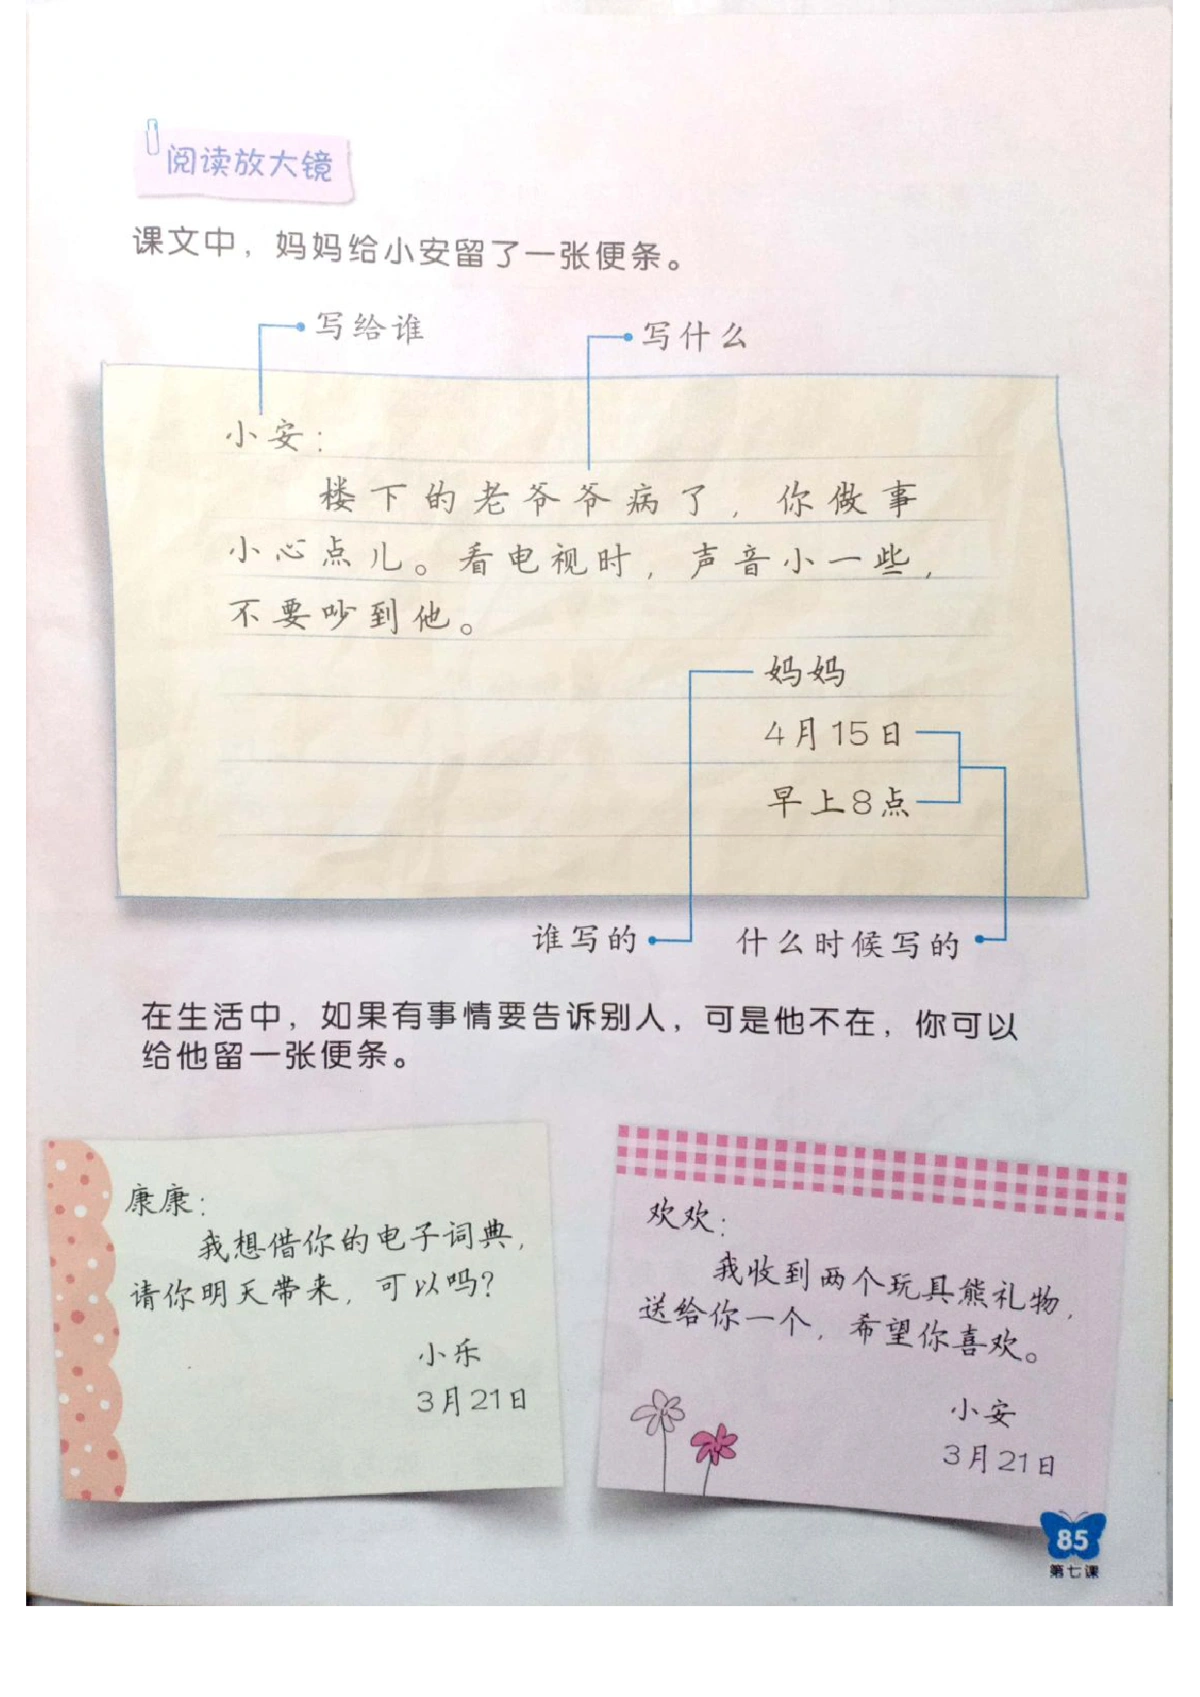 阅读放大镜
课文中，妈妈给小安留了一张便条。
写给谁
写什么
小安：
楼下的老爷爷病了，你做事
小心点儿。看电视时，声音小一些，
不要吵到他。
妈妈
4月15日
早上8点
谁写的
什么时候写的
在生活中，如果有事情要告诉别人，可是他不在，你可以
给他留一张便条。
康康：
我想借你的电子词典，
请你明天带来，可以吗？
小乐
3月21日
欢欢：
我收到两个玩具熊礼物，
送给你一个，希望你喜欢。
小安
3月21日
85
第七课